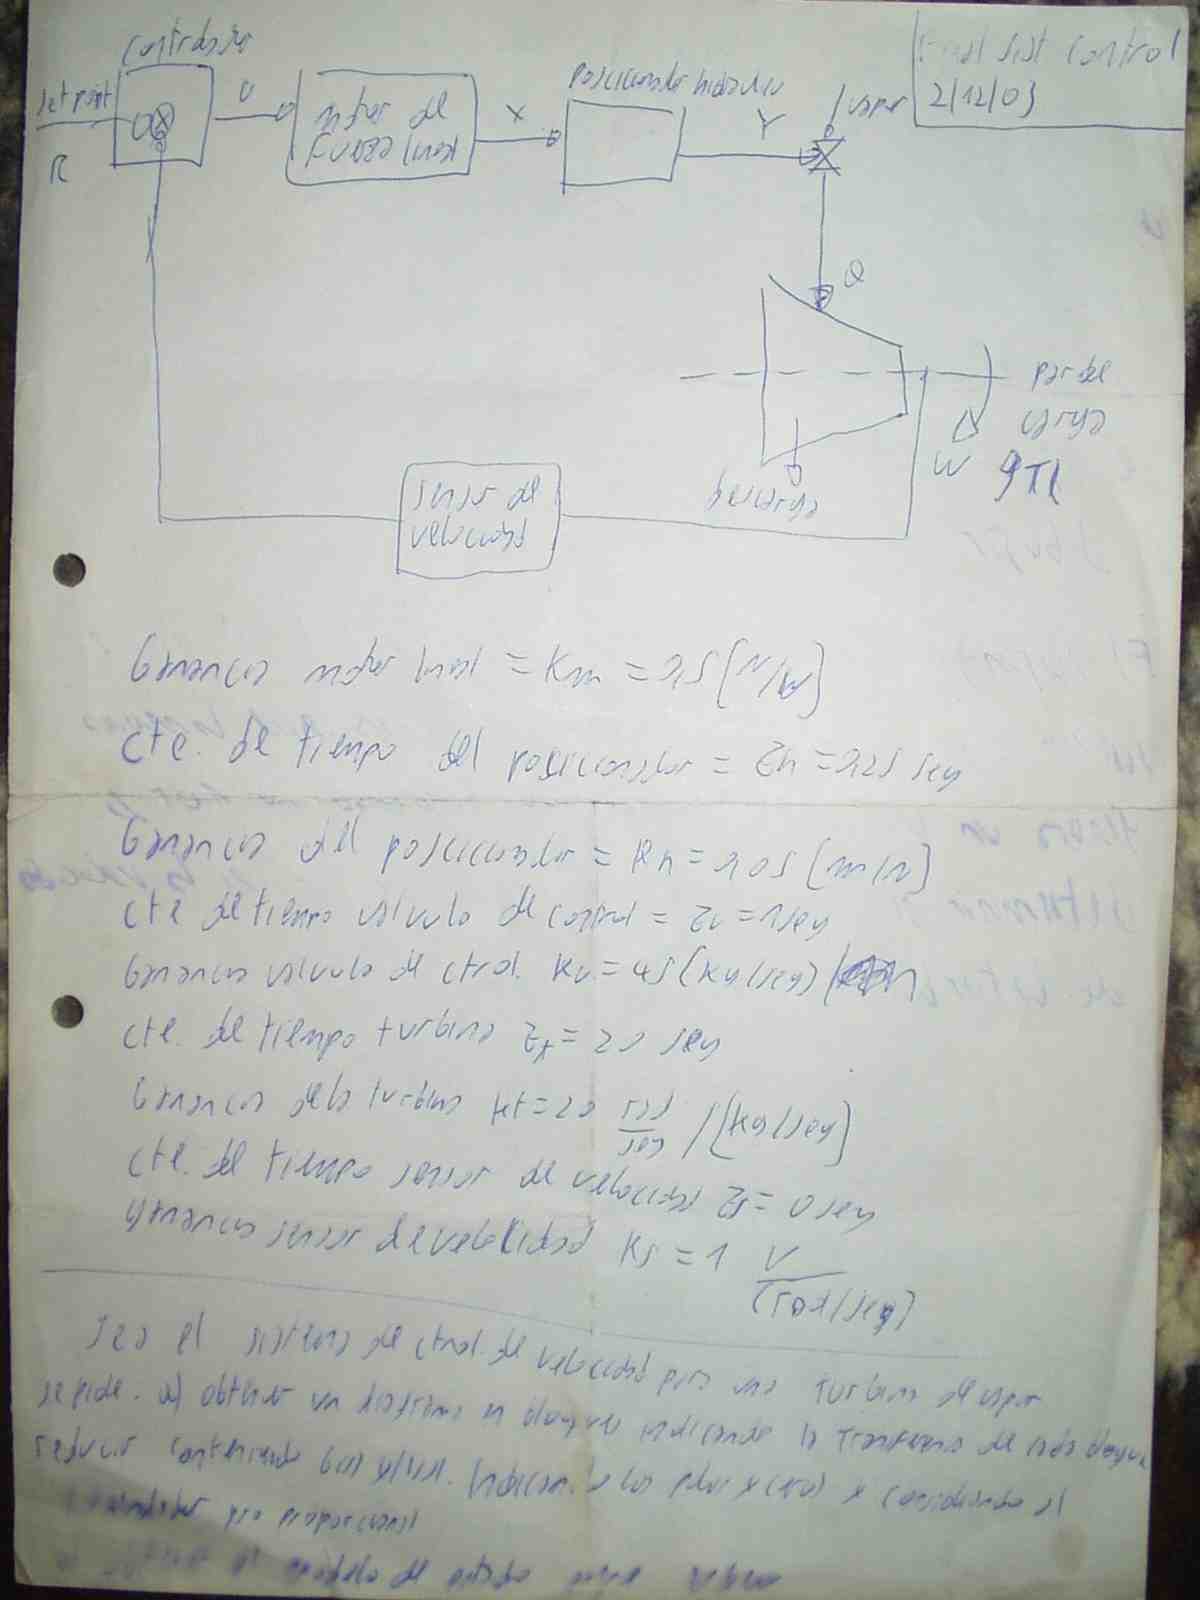 Final sist control
2/12/03
controlador
set point
R
U
motor de
fuerza lineal
X
posicionador hidraulico
Y
vapor
Q
par de
carga
W
descarga
sensor de
velocidad
Ganancia motor lineal = Km = 0,5 [N/V]
cte. de tiempo del posicionador = Zh = 0,25 seg
Ganancia del posicionador = Kh = 0,05 [m/N]
cte de tiempo valvula de control = Zv = 1 seg
Ganancia valvula de ctrol. Kv = 45 (Kg/seg) /m
cte. de tiempo turbina Zt = 20 seg
Ganancia de la turbina Kt = 20 rad/seg / [Kg/seg]
cte. de tiempo sensor de velocidad Zs = 0 seg
ganancia sensor de velocidad Ks = 1 V/(rad/seg)
Sea el sistema de ctrol. de velocidad para una turbina de vapor
se pide. a) obtener un diagrama en bloques indicando la transferencia de cada bloque
reducir considerando el
proporcional
modelo de estado